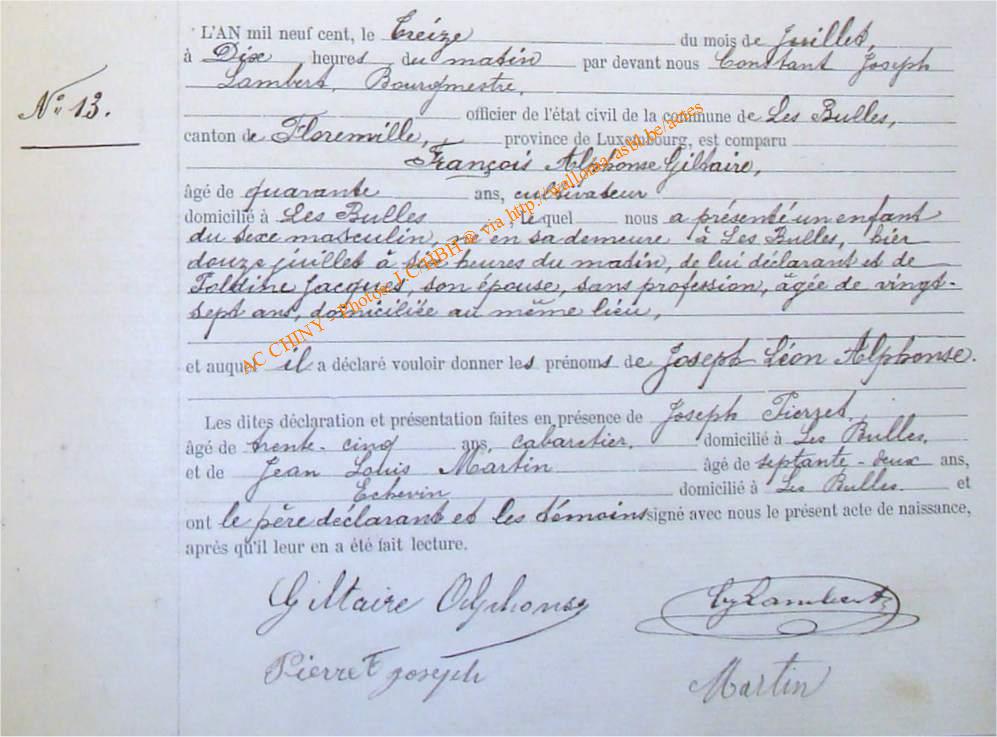 L'AN mil neuf cent, le Treize du mois de Juillet,
à Dix heures du matin par devant nous Constant Joseph
Lambert, Bourgmestre,
Nº 13.
officier de l'état civil de la commune de Les Bulles,
canton de Florenville, province de Luxembourg, est comparu
François Alphonse Giltaire,
âgé de quarante ans, cultivateur
domicilié à Les Bulles, lequel nous a présenté un enfant
du sexe masculin, né en sa demeure à Les Bulles, hier
douze juillet à six heures du matin, de lui déclarant et de
Jacques, son épouse, sans profession, âgée de vingt-
sept ans, domiciliée au même lieu,
et auquel il a déclaré vouloir donner les prénoms de Joseph Léon Alphonse.
Les dites déclaration et présentation faites en présence de Joseph Pierret,
âgé de trente-cinq ans, cabaretier, domicilié à Les Bulles,
et de Jean Louis Martin âgé de septante-deux ans,
Echevin domicilié à Les Bulles. et
ont le père déclarant et les témoins signé avec nous le présent acte de naissance,
après qu'il leur en a été fait lecture.
Giltaire Alphonse Lambert
Pierret joseph Martin
AC CHINY - Photos J.C HBH ® via http://galloma-asbl.be/actes